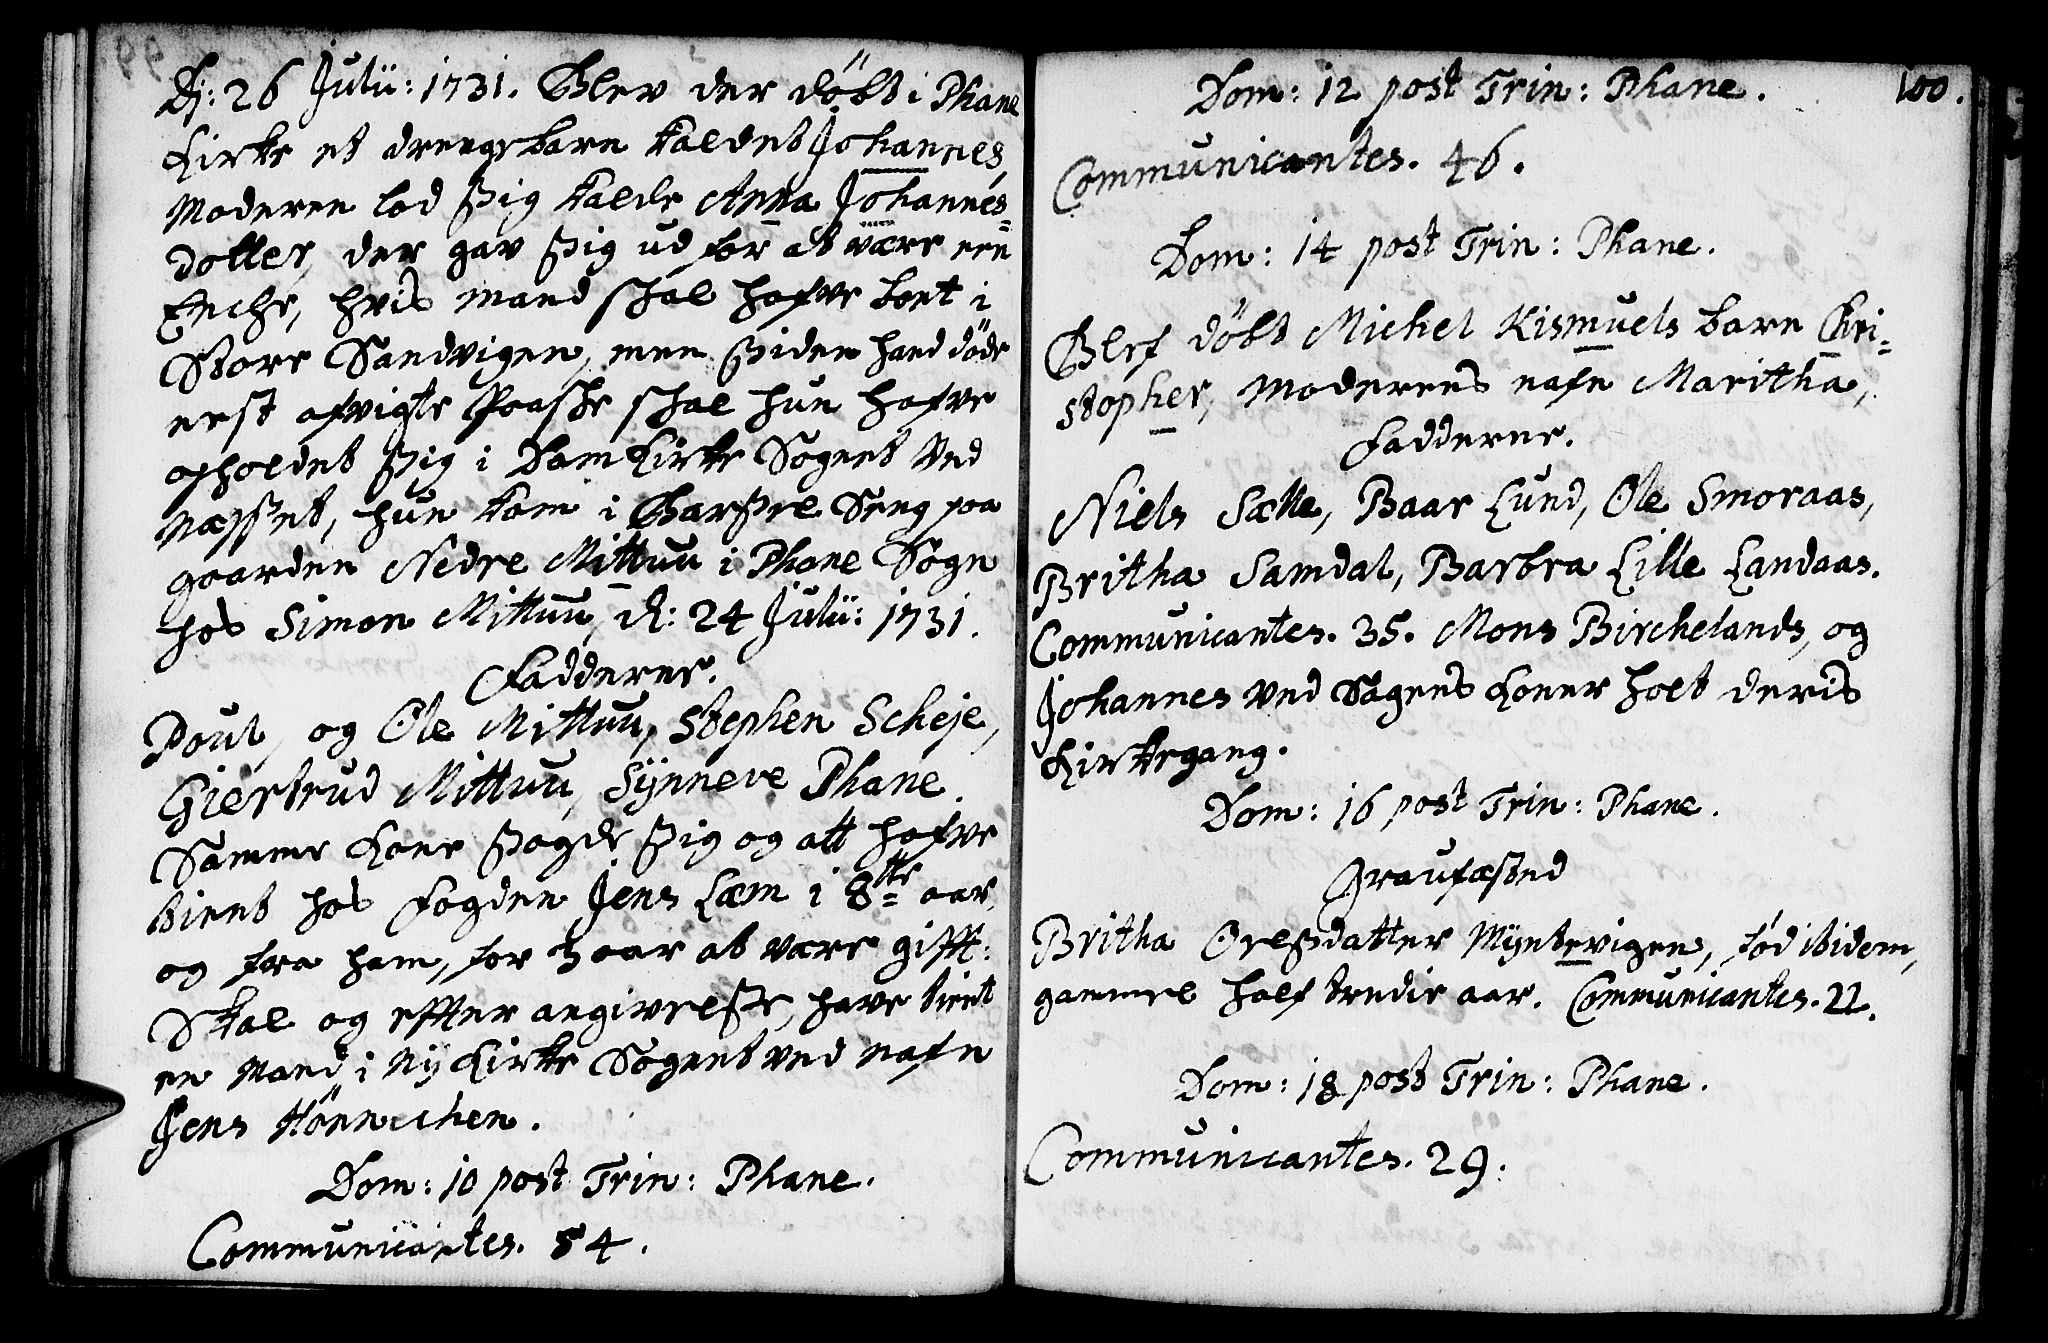 Dj: 26 Julii: 1731. Blev der döbt i Phane
Kirke et drengebarn kaldet Johannes,
Moderen lod sig kalde Anna Johannes=
dotter, der gav sig ud for at være een
Enche, hvis mand skal hafve boet i
Store Sandvigen, men siden hand döde
nest afvigte Paaske skal hun hafve
opholdet sig i DomKirke Sognet ved
Næsset, hun kom i Barsel Seng paa
gaarden Nedre Mittuu i Phane Sogn
hos Simon Mittuu, d: 24 Julii: 1731.
Fadderne.
Poul, og Ole Mittuu, Stephen Scheje,
Giertrud Mittuu, Sÿnneve Phane.
Samme Kone sagde sig og att hafve
tient hos Fogden Jens Læm i 8tte aar,
og fra ham, for 3 aar at være gifft:
Skal og effter angivelse, have tient
en Mand i Nÿ Kirke Sognet ved nafn
Jens Hönnichen.
Dom: 10 post Trin: Phane.
Communicantes. 54.
100.
Dom: 12 post Trin: Phane.
Communicantes. 46.
Dom: 14 post Trin: Phane.
Blef döbt Michel Kismuels barn Chri=
stopher, Moderens nafn Maritha,
Fadderne.
Niels Sælle, Baar Lund, Ole Smoraas,
Britha Samdal, Barbra Lille Landaas.
Communicantes. 35. Mons Birchelands, og
Johannes ved Sagens Koner holt deris
Kirkegang.
Dom: 16 post Trin: Phane.
Graufæsted
Britha Orlsdatter Mÿntevigen, fød ibidem,
gammel half tredie aar. Communicantes. 22.
Dom: 18 post Trin: Phane.
Communicantes. 29.